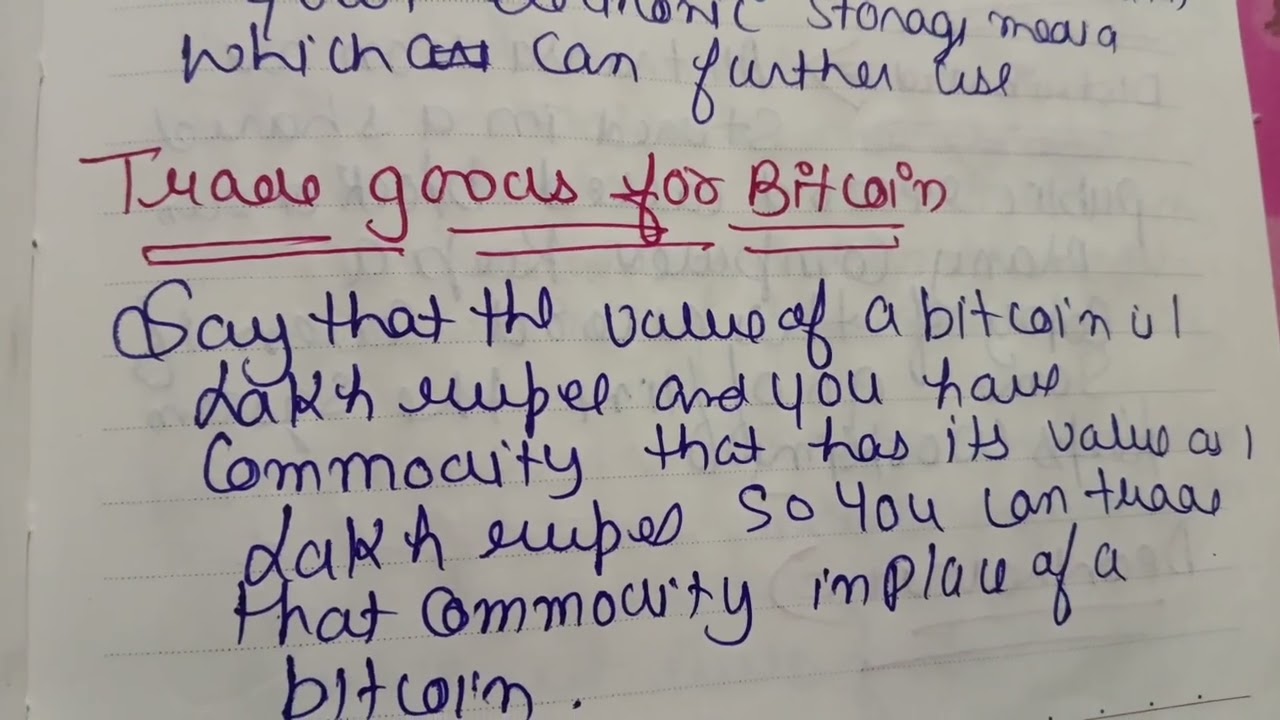 storage media
which can further use
Trade goods for Bitcoin
Say that the value of a bitcoin is 1
Lakh rupee and you have
Commodity that has its value as 1
Lakh rupees so you can trade
that commodity in place of a
bitcoin.